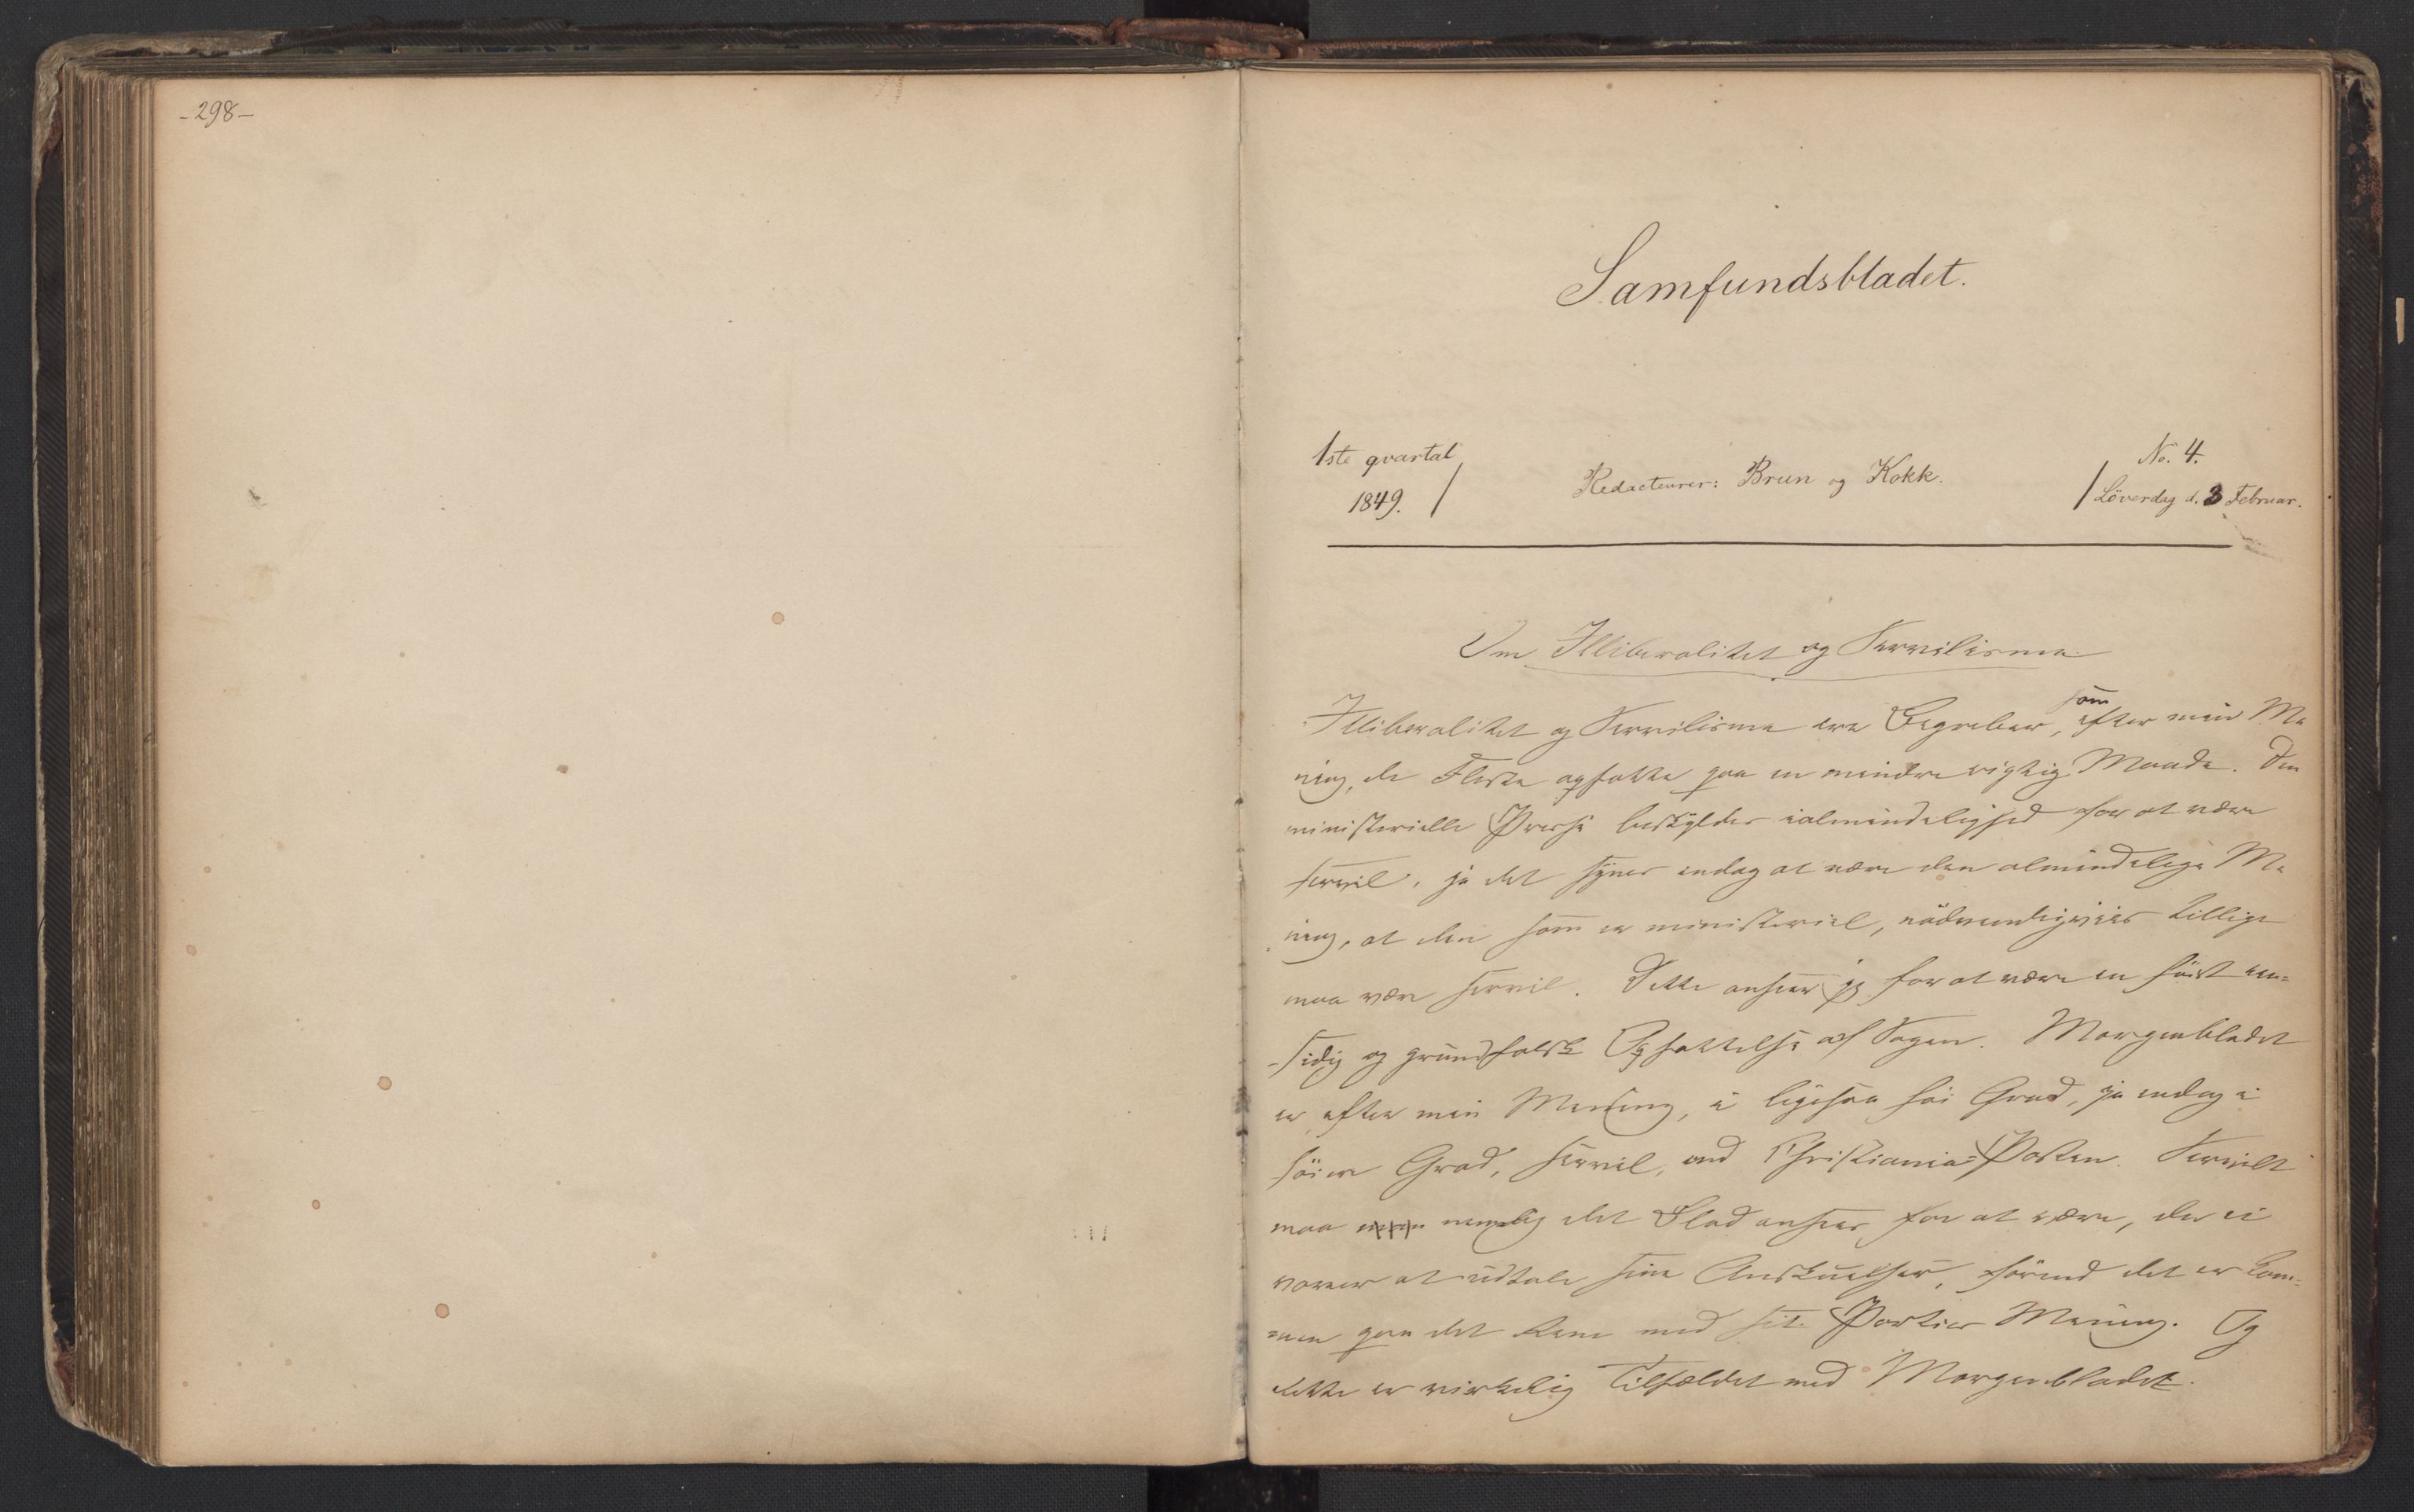 -298-
Samfundsbladet.
1ste qvartal
1849.
Redacteurer: Brun og Kokk.
No. 4.
Löverdag d. 3 Februar.
Om Illiberalitet og Servilisme
Illiberalitet og Servilisme ere Begreber, som efter min Me
ning, de Fleste opfatte paa en mindre rigtig Maade. Den
ministerielle Presse beskyldes ialmindelighed for at være
servil, ja det synes endog at være den almindelige Me
ning, at den som er ministeriel, nödvendigviis tillige
maa være servil. Dette anseer jeg for at være en höist een-
sidig og grundfalsk Opfattelse af Sagen. Morgenbladet
er efter min Mening, i ligesaa höi Grad, ja endog i
höiere Grad, servil, end Christiania-Posten. Servilt
maa nemlig det Blad ansees for at være, der ei
vover at udtale sine Anskuelser, förend det er kom-
men paa det Rene med sit Parties Mening. Og
dette er virkelig Tilfældet med Morgenbladet.